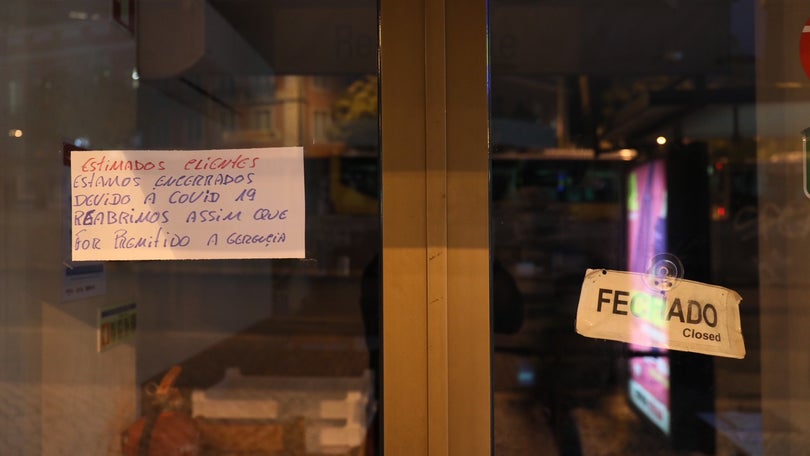 ESTIMADOS CLIENTES
ESTAMOS ENCERRADOS
DEVIDO A COVID 19
REABRIMOS ASSIM QUE
FOR PREMITIDO A GERENCIA
FECHADO
Closed